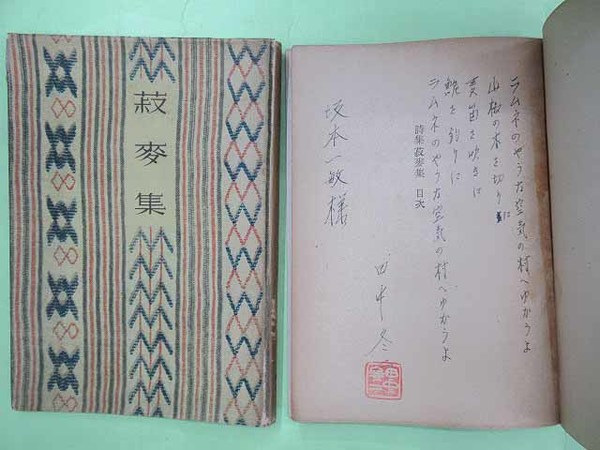 菽麥集
ラムネのやうな空気の村へゆかうよ
山桜の木を切りに
麦笛を吹きに
を釣りに
ラムネのやうな空気の村へゆかうよ
詩集菽麥集 目次
坂本一敏様
田中冬二